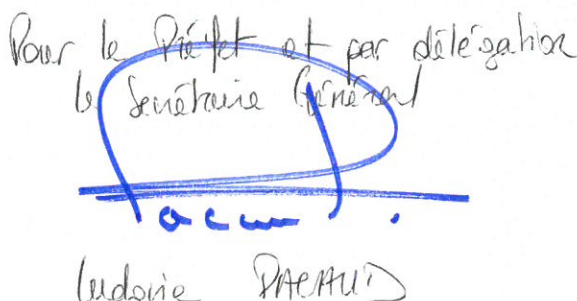 Pour le Préfet et par délégation
le Secrétaire Général
Ludovic PACAUD